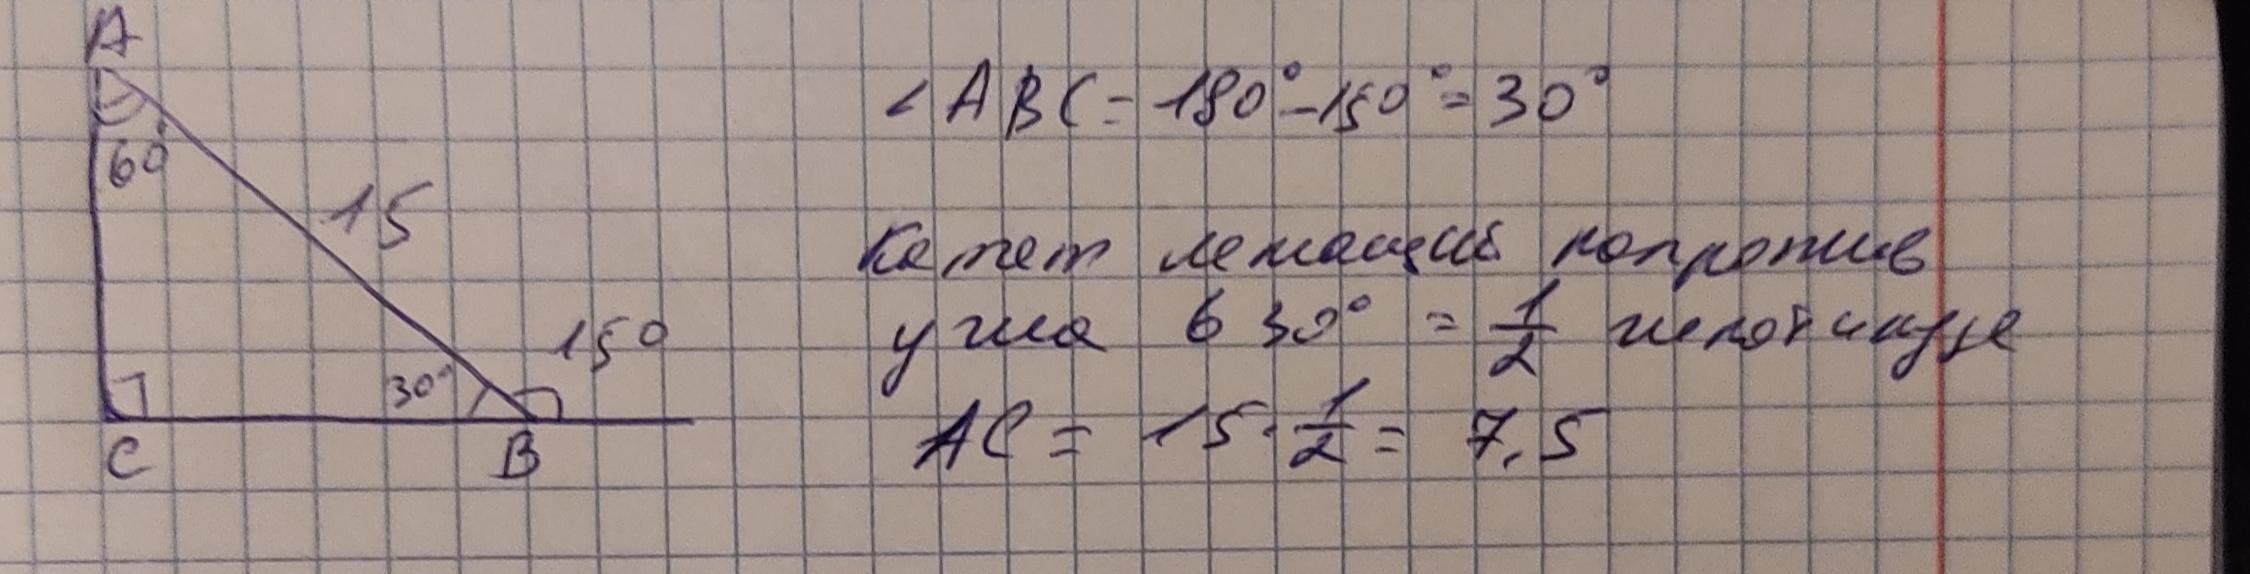 A
60°
15
150
30°
C
B
∠ABC = 180° - 150° = 30°
Катет лежащий напротив
угла в 30° = 1/2 гипотинузе
AC = 15 · 1/2 = 7.5